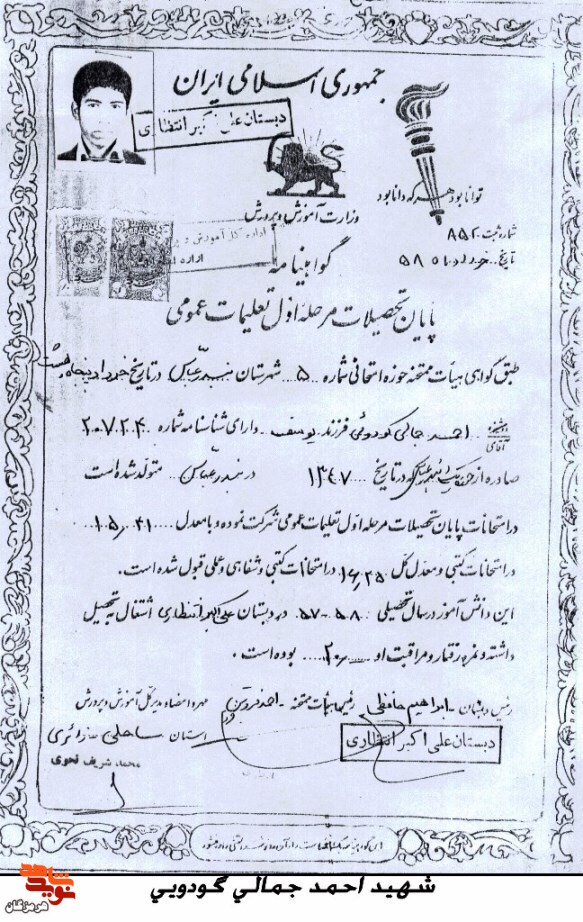 جمهوری اسلامی ایران
دبستان علی اکبر انتظاری
توانا بود هر که دانا بود
وزارت آموزش و پرورش
شماره ثبت ۸۵۲
تاریخ خرداد ماه ۵۸
اداره کل آموزش و پ
گواهینامه
پایان تحصیلات مرحله اول تعلیمات عمومی
طبق گواهی هیأت ممتحنه حوزه امتحانی شماره ۵ شهرستان بندرعباس در تاریخ خرداد پنجاه و هشت
دوشیزه
آقای احمد جمالی گودوئی فرزند یوسف دارای شناسنامه شماره ۲۰۷۲۴
صادره از در تاریخ ۱۳۴۷ در بندرعباس متولد شده است
در امتحانات پایان تحصیلات مرحله اول تعلیمات عمومی شرکت نموده و با معدل
در امتحانات کتبی و معدل کل ۱۶٫۲۵ در امتحانات کتبی و شفاهی و عملی قبول شده است.
این دانش آموز در سال تحصیلی ۵۸-۵۷ در دبستان علی اکبر انتظاری اشتغال به تحصیل
داشته و نمره رفتار و مراقبت او ۲۰ بوده است.
رئیس دبستان - ابراهیم حافظی رئیس هیأت ممتحنه - احمد مهر و امضاء مدیر کل آموزش و پرورش
استان ساحلی
دبستان علی اکبر انتظاری
محمد شریف نحوی
شهید احمد جمالي گودويي
نوید شاهد
هرمزگان